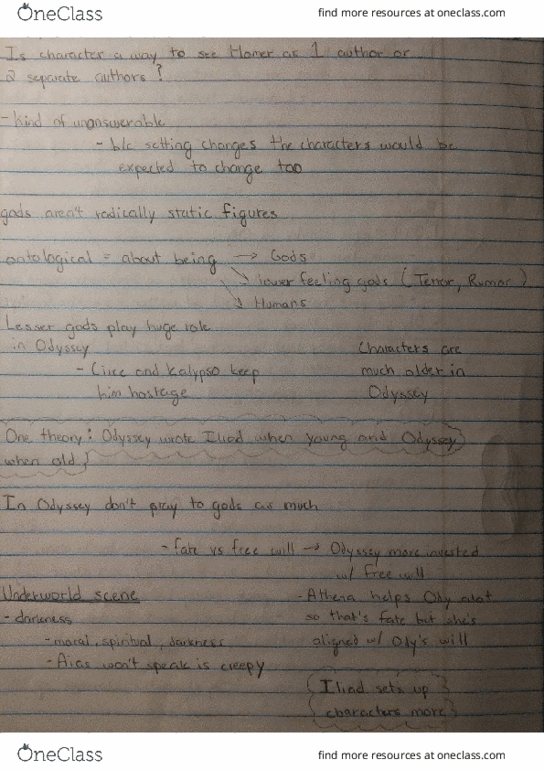 OneClass
find more resources at oneclass.com
Is character a way to see Homer as 1 author or
2 separate authors?
- Kind of unanswerable
- b/c setting changes the characters would be
expected to change too
gods aren't radically static figures
ontological = about being → Gods
↘ lower feeling gods (Terror, Rumor)
↘ Humans
Lesser gods play huge role
in Odyssey
- Circe and Kalypso keep
him hostage
Characters are
much older in
Odyssey
One theory: Odyssey wrote Iliad when young and Odyssey
when old
In Odyssey don't pray to gods as much
- fate vs free will → Odyssey more invested
w/ free will
Underworld scene
- darkness
- moral, spiritual, darkness
- Aias won't speak is creepy
- Athena helps Ody alot
so that's fate but she's
aligned w/ Ody's will
Iliad sets up
characters more
OneClass
find more resources at oneclass.com